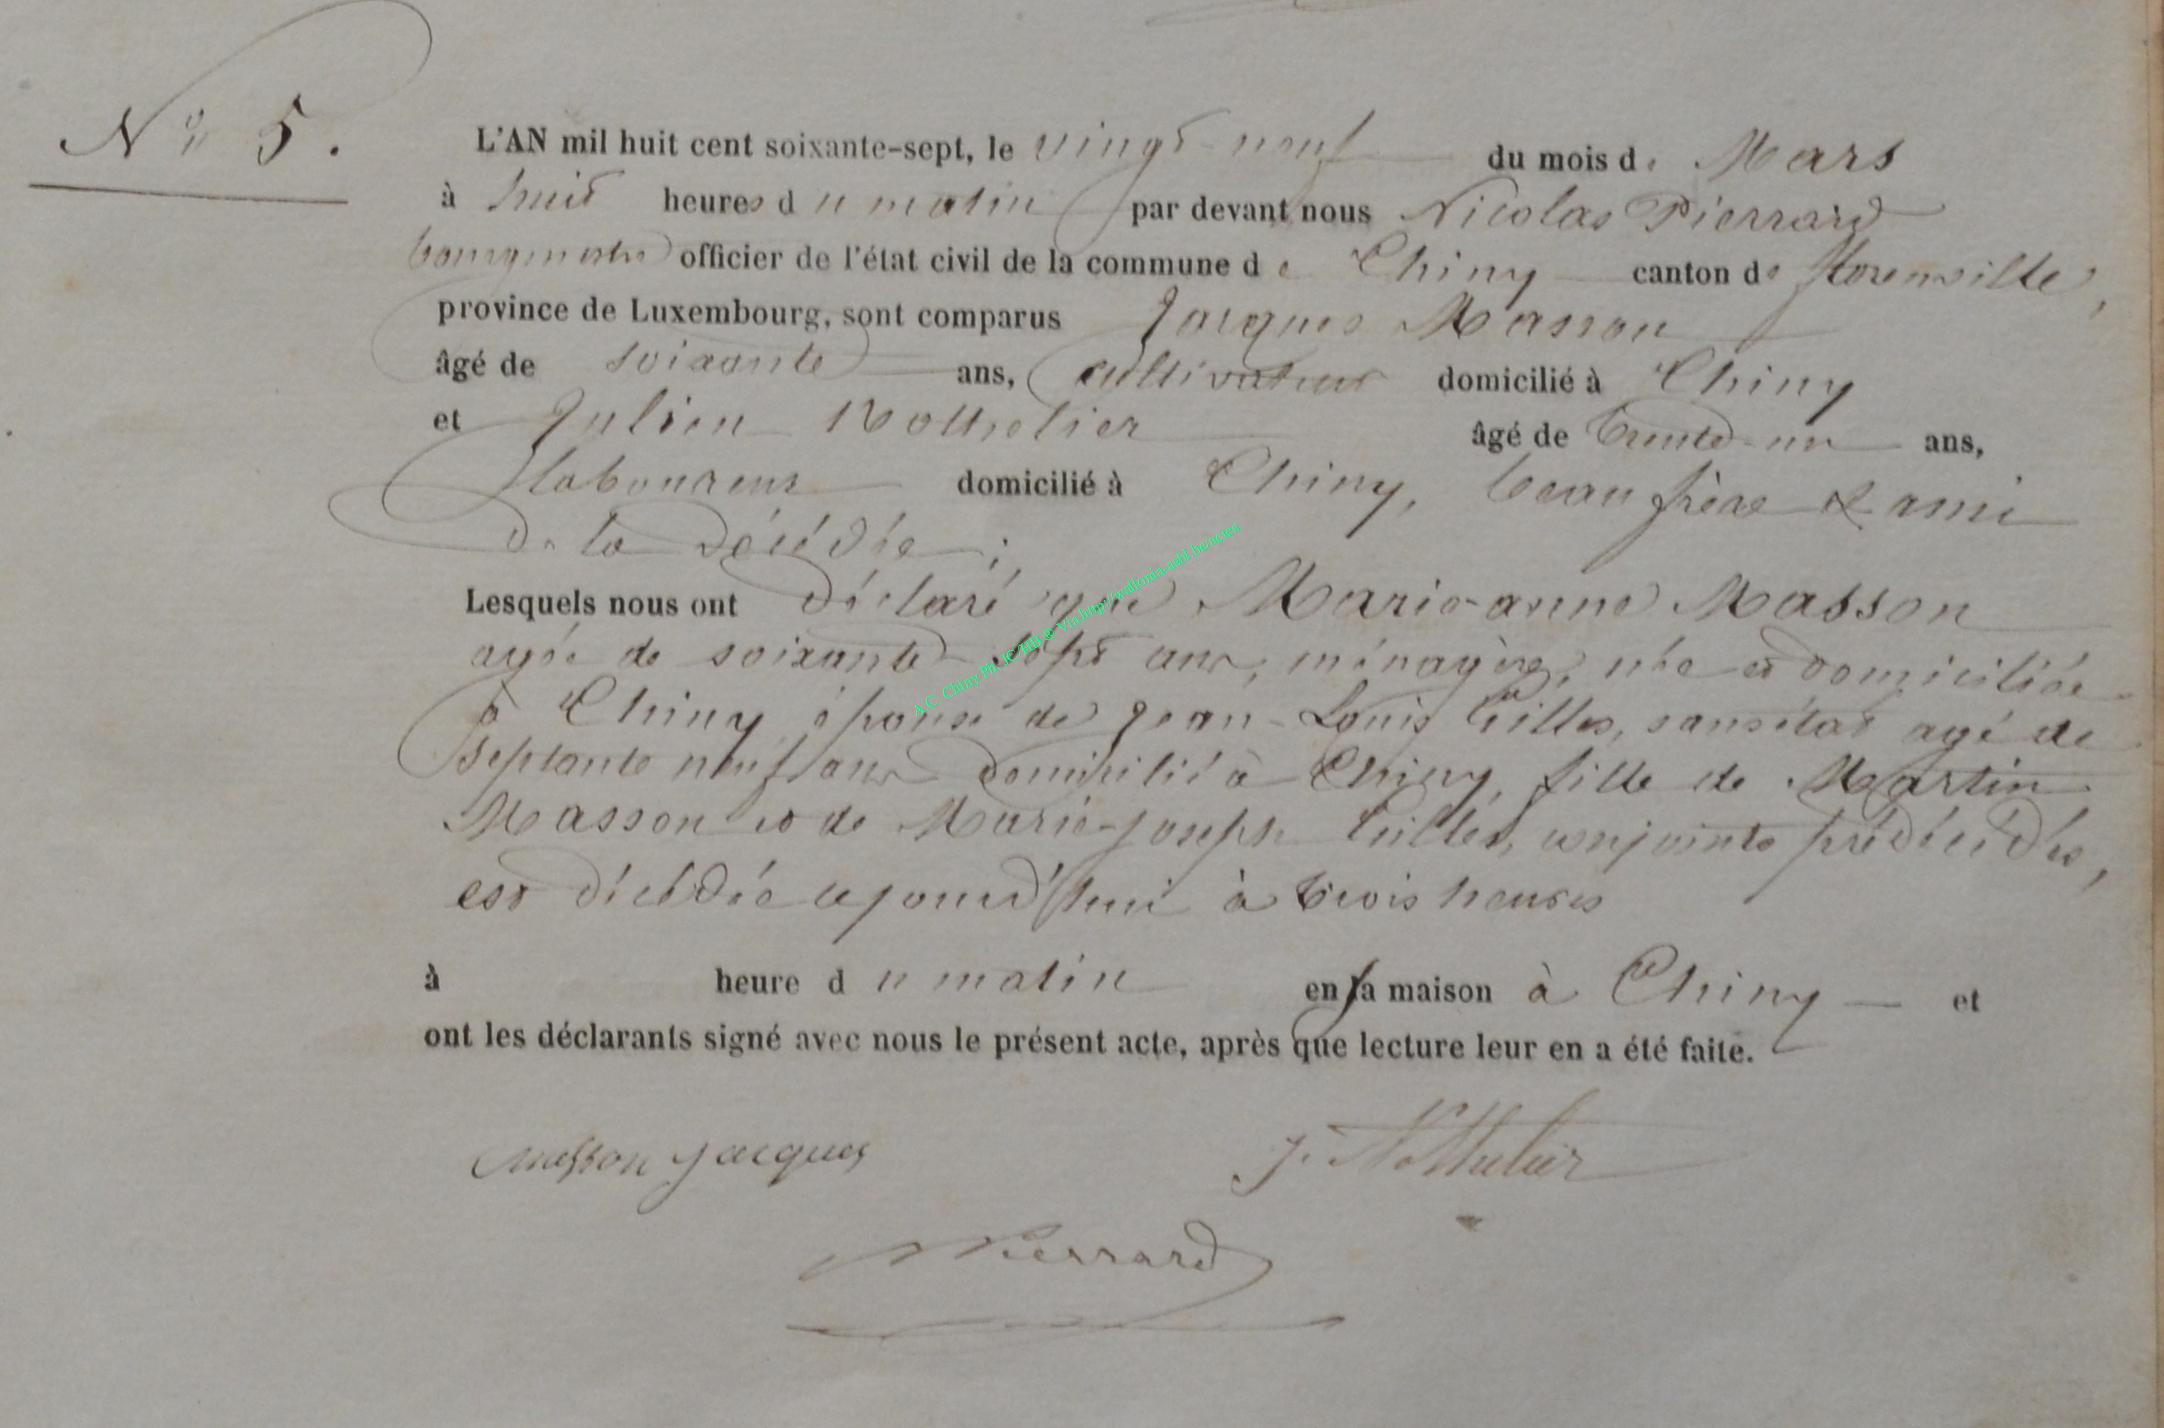 N° 5.
L'AN mil huit cent soixante-sept, le vingt-neuf du mois de Mars
à huit heures du matin par devant nous Nicolas Pierrard
bourgmestre officier de l'état civil de la commune de Chiny canton de florenville,
province de Luxembourg, sont comparus Jacques Masson
âgé de soixante ans, cultivateur domicilié à Chiny
et Julien Nothelier âgé de trente-un ans,
laboureur domicilié à Chiny, beau frère & ami
de la décédée ;
Lesquels nous ont déclaré que Marie-anne Masson
agée de soixante sept ans, ménagère, née et domiciliée
à Chiny, épouse de Jean-Louis Gilles, sans état agé de
septante neuf ans domicilié à Chiny, fille de Martin
Masson et de Marie-Joseph Gilles, conjoints prédécédés,
est décédée cejourd'hui à trois heures
à heure du matin en sa maison à Chiny et
ont les déclarants signé avec nous le présent acte, après que lecture leur en a été faite.
A.C. Chiny Via http://wallonia-asbl.be/actes
Masson Jacques
J. Nothelier
N Pierrard